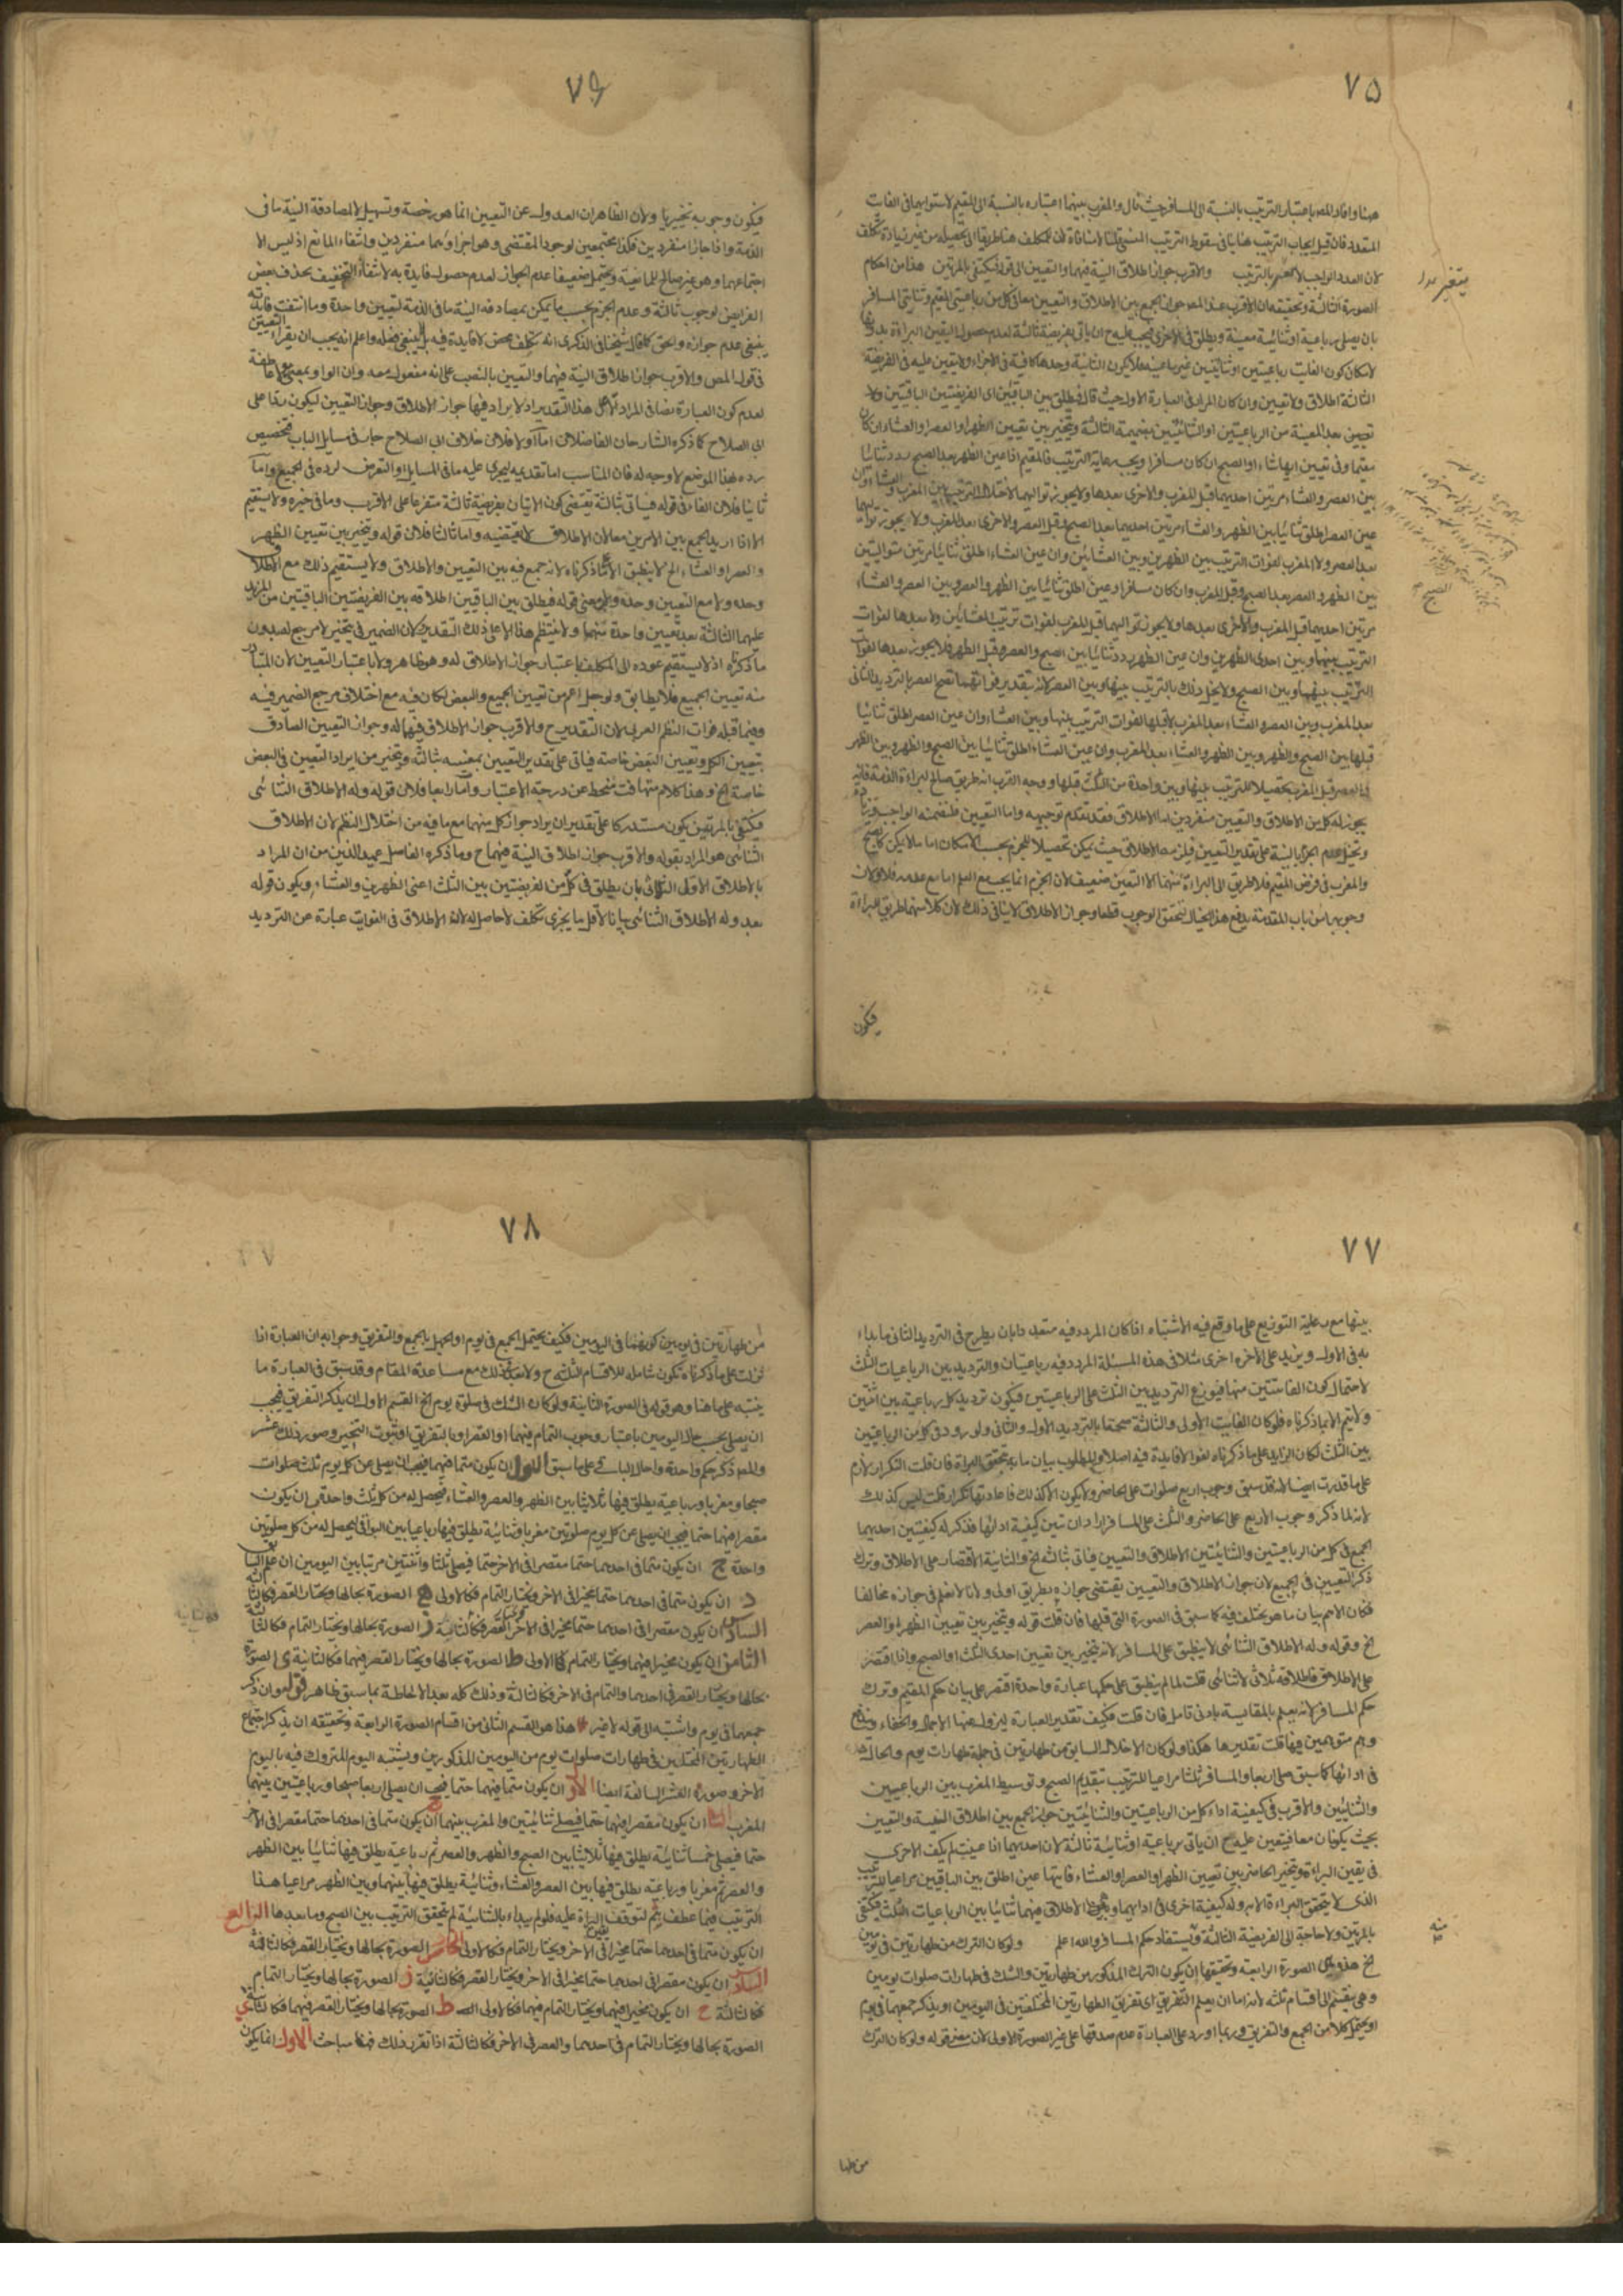 ٧٥
هنا وافاد المصر باعتبار الترتيب بالنسبة الى المسافر حيث قال والمغرب بينهما اعتباره بالنسبة الى المقيم لاستوائهما فى الفايت
المتعدد فان قيل ايجاب الترتيب هنا ينافى سقوط الترتيب المنسى قلنا لا منافاة لان للمكلف هنا طريقا الى تحصيله من غير زيادة تكلف
لان العدد الواجب لا يتغير بالترتيب والاقرب جواز اطلاق النية فيهما والتعيين الى قوله فيكتفى بالمرتين هذا من احكام
الصورة الثالثة وتحقيقه ان الاقرب عند المصر جواز الجمع بين الاطلاق والتعيين معا فى كل من رباعيتى المقيم وثنايتى المسافر
بان يصلى رباعية او ثنائية معينة ويطلق فى الاخرى فيجب عليه ح ان ياتى بفريضة ثالثة لعدم حصول اليقين البراءة بدونها
لامكان كون الفايت رباعيتين او ثنائيتين غير ما عينه فلا يكون الثانية وحدها كافية فى الاجزاء ولا يتعين عليه فى الفريضة
الثالثة اطلاق ولا تعيين وان كان المراد فى العبارة الاول حيث قال فيطلق بين الباقيتين اى الفريضتين الباقيتين ولا
تعيين بعد المعينة من الرباعيتين او الثنائيتين بضميمة الثالثة ويتخير بين تعيين الظهر او العصر او العشاء ان كان
مقيما وفى تعيين ايها شاء او الصبح ان كان مسافرا ويجب رعاية الترتيب فالمقيم اذا عين الظهر بعد الصبح ردد ثنائيا
بين العصر والعشاء مرتين احديهما قبل المغرب والاخرى بعدها ولا يجوز تواليهما لاختلال الترتيب بين المغرب والعشاء وان
عين العصر اطلق ثنائيا بين الظهر والعشاء مرتين احديهما بعد الصبح وقبل العصر والاخرى بعد المغرب ولا يجوز تواليهما
بعد العصر ولا المغرب لفوات الترتيب بين الظهرين وبين العشائين وان عين العشاء اطلق ثنائيا مرتين متواليتين
بين الظهر والعصر بعد الصبح وقبل المغرب وان كان مسافرا وعين اطلق ثنائيا بين الظهر والعصر وبين العصر والعشاء
مرتين احديهما قبل المغرب والاخرى بعدها ولا يجوز تواليهما قبل المغرب لفوات ترتيب العشائين ولا بعدها لفوات
الترتيب بينها وبين احدى الظهرين وان عين الظهر ردد ثنائيا بين الصبح والعصر وقبل الظهر فلا يجوز بعدها لفوات
الترتيب بينهما وبين الصبح ولا يخل ذلك بالترتيب بينها وبين العصر لانه بتقدير فواتهما تصح العصر بالترديد الثانى
بعد المغرب وبين العصر والعشاء بعد المغرب لا قبلها لفوات الترتيب بينها وبين العشاء وان عين العصر اطلق ثنائيا
قبلها بين الصبح والظهر وبين الظهر والعشاء بعد المغرب وان عين العشاء اطلق ثنائيا بين الصبح والظهر وبين الظهر
والعصر قبل المغرب تحصيلا للترتيب بينها وبين واحدة من الثلث قبلها ووجه القرب انه طريق صالح لبراءة الذمة فانه
يجوز له كل من الاطلاق والتعيين منفردين اما الاطلاق فقد تقدم توجيهه واما التعيين فلتضمنه الواجب وزيادة
ويحتمل عدم اجزاء النية على تقدير التعيين فلن مع الاطلاق حيث يمكن تحصيلا للجزم بحسب الامكان اما ما لا يمكن كالصبح
والمغرب فى فرض المقيم فلا طريق الى البراءة منهما الا التعيين ضعيف لان الجزم انما يجب مع العلم اما مع عدمه فلا ولان
وجوبهما من باب المقدمة يدفع هذا الخيال لتحقق الوجوب قطعا وجواز الاطلاق لا ينافى ذلك لان كلا منهما طريق للبراءة
فيكون
٧٦
فيكون وجوبه تخييريا ولان الظاهر ان العدول عن التعيين انما هو رخصة وتسهيل لا لمصادفة النية ما فى
الذمة واذا جازا منفردين فكذا مجتمعين لوجود المقتضى وهو اجزاؤهما منفردين وانتفاء المانع اذ ليس الا
اجتماعهما وهو غير صالح للمانعية ويحتمل ضعيفا عدم الجواز لعدم حصول فايدة به لانتفاء التخفيف بحذف بعض
الفرايض لوجوب ثالثة وعدم الجزم بحسب ما يمكن بمصادفة النية ما فى الذمة لتعيين واحدة وما انتفت فايدته
ينبغى عدم جوازه والحق كما قال شيخنا فى الذكرى انه تكلف محض لا فايدة فيه بل ينبغى فعله واعلم انه يجب ان يقرا التعيين
فى قول المص والاقرب جواز اطلاق النية فيهما والتعيين بالنصب على انه مفعول معه وان الواو بمعنى مع لا عاطفة
لعدم كون العبارة نصا فى المراد على هذا التقدير اذ لا يراد فيها جواز الاطلاق وجواز التعيين ليكون ردا على
ابى الصلاح كما ذكره الشارحان الفاضلان اما اولا فلان خلاف ابى الصلاح جار فى مسايل الباب فتخصيص
رده بهذا الموضع لا وجه له فان المناسب اما تقديمه ليجرى عليه ما فى المسايل او التعرض لرده فى الجميع واما
ثانيا فلان الفاء فى قوله فياتى بثالثة يقتضى كون الاتيان بفريضة ثالثة متفرعا على الاقرب وما فى حيزه ولا يستقيم
الا اذا اريد الجمع بين الامرين معا لان الاطلاق لا يقتضيه واما ثالثا فلان قوله ويتخير بين تعيين الظهر
والعصر او العشاء الخ لا ينطبق الا على ما ذكرناه لانه جمع فيه بين التعيين والاطلاق ولا يستقيم ذلك مع الاطلاق
وحده ولا مع التعيين وحده ولان معنى قوله فيطلق بين الباقيتين اطلاقه بين الفريضتين الباقيتين من المزيد
عليهما الثالثة بعد تعيين واحدة منهما ولا ينتظم هذا الا على ذلك التقدير ولان الضمير فى يتخير لا مرجع له بدون
ما ذكرناه اذ لا يستقيم عوده الى المكلف باعتبار جواز الاطلاق له وهو ظاهر ولا باعتبار التعيين لان المتبادر
منه تعيين الجميع فلا يطابق ولو جعل اعم من تعيين الجميع والبعض لكان فيه مع اختلاف مرجع الضمير فيه
وفيما قبله فوات النظم العربى لان التقدير ح والاقرب جواز الاطلاق فيهما له وجواز التعيين الصادق
بتعيين الكل وتعيين البعض خاصة فياتى على تقدير التعيين بمعنييه بثالثة ويتخير من ايراد التعيين فى البعض
خاصة الخ وهذا كلام متهافت منحط عن درجة الاعتبار واما رابعا فلان قوله وله الاطلاق الثنائى
فيكتفى بالمرتين يكون مستدركا على تقدير ان يراد جواز كل منهما مع ما فيه من اختلال النظم لان الاطلاق
الثنائى هو المراد بقوله والاقرب جواز اطلاق النية فيهما ح وما ذكره الفاضل عميد الدين من ان المراد
بالاطلاق الاول الثلاثى بان يطلق فى كل من الفريضتين بين الثلث اعنى الظهرين والعشاء ويكون قوله
بعد وله الاطلاق الثنائى بيانا لاقل ما يجزى تكلف لا حاصل له لان الاطلاق فى الفوايت عبارة عن الترديد
٧٧
بينها مع رعاية التوزيع على ما وقع فيه الاشتباه اذا كان المردد فيه متعددا بان يطرح فى الترديد الثانى ما بداء
به فى الاول ويزيد على الاخر اخرى مثلا فى هذه المسئلة المردد فيه رباعيتان والترديد بين الرباعيات الثلث
لاحتمال كون الفائتتين منها فيوزع الترديد بين الثلث على الرباعيتين فيكون ترديد كل رباعية بين اثنتين
ولا يتم الا بما ذكرناه فلو كان الفايت الاولى والثالثة صحتا بالترديد الاول والثانى ولو ردد فى كل من الرباعيتين
بين الثلث لكان الزايد على ما ذكرناه لغوا لا فايدة فيه اصلا والمطلوب بيان ما به تتحقق البراة فان قلت التكرار لازم
على ما قدرت ايضا لانه قد سبق وجوب اربع صلوات على الحاضر ولا يكون الا كذلك فاعادتها تكرار قلت ليس كذلك
لانه لما ذكر وجوب الاربع على الحاضر والثلث على المسافر اراد ان يبين كيفية ادائها فذكر له كيفيتين احديهما
الجمع فى كل من الرباعيتين والثنائيتين الاطلاق والتعيين فياتى بثالثة الخ والثانية الاقتصار على الاطلاق وترك
ذكر التعيين فى الجميع لان جواز الاطلاق والتعيين يقتضى جوازه بطريق اولى ولانا لا نعلم فى جوازه مخالفا
فكان الاهم بيان ما هو يختلف فيه كما سبق فى الصورة التى قبلها فان قلت قوله ويتخير بين تعيين الظهر او العصر
الخ وقوله وله الاطلاق الثنائى لا ينطبق على المسافر لانه يتخير بين تعيين احدى الثلث او الصبح واذا اقتصر
على الاطلاق فاطلاقه ثلاثى لا ثنائى قلت لما لم ينطبق على حكمها عبارة واحدة اقتصر على بيان حكم المقيم وترك
حكم المسافر لانه يعلم بالمقايسة بادنى تامل فان قلت فكيف تقدير العبارة ليزول عنها الاجمال والخفاء ويندفع
وهم متوهمين فيها قلت تقديرها هكذا ولو كان الاخلال السابق من طهارتين فى جملة طهارات يوم والحال
فى ادائها كما سبق صلى اربعا والمسافر ثلثا مراعيا للترتيب بتقديم الصبح وتوسيط المغرب بين الرباعيتين
والثنائيتين والاقرب فى كيفية اداء كل من الرباعيتين والثنائيتين جواز الجمع بين اطلاق النية والتعيين
بحيث يكونان معا فيتعين عليه ح ان ياتى برباعية او ثنائية ثالثة لان احديهما اذا عينت لم يكف الاخرى
فى يقين البراءة ويتخير الحاضر بين تعيين الظهر او العصر او العشاء فايتها عين اطلق بين الباقيتين مراعيا للترتيب
الذى لا يتحقق البراءة الا به وله كيفية اخرى فى ادائهما وهى الاطلاق فيهما ثنائيا بين الرباعيات الثلث فيكتفى
بالمرتين ولا حاجة الى الفريضة الثالثة ويستفاد حكم المسافر والله اعلم ولو كان الترك من طهارتين فى يومين
الخ هذه هى الصورة الرابعة وتحقيقها ان يكون الترك المذكور من طهارتين والشك فى طهارات صلوات يومين
وهى ينقسم الى اقسام ثلثة لانه اما ان يعلم التفريق اى تفريق الطهارتين المختلفتين فى اليومين او يذكر جمعهما فى يوم
او يحتمل كلا من الجمع والتفريق وربما اورد على العبارة عدم صدقها على غير الصورة الاولى لان معنى قوله ولو كان الترك
منه
من طها
٧٨
من طهارتين فى يومين كونهما فى اليومين فكيف يحتمل الجمع فى يوم او الجهل بالجمع والتفريق وجوابه ان العبارة اذا
نزلت على ما ذكرناه تكون شاملة للاقسام الثلث ح ولا بعد فى ذلك مع مساعدة المقام وقد سبق فى العبارة ما
ينبه على ما هنا وهو قوله فى الصورة الثانية ولو كان الشك فى صلوة يوم الخ القسم الاول ان يذكر التفريق فيجب
ان يصلى بحسب حال اليومين باعتبار وجوب التمام فيهما او القصر او بالتفريق او ثبوت التخيير وصور ذلك عشر
والمصر ذكر حكم واحدة واحال الباقى على ما سبق الاول ان يكون متما فيهما فيجب ان يصلى عن كل يوم ثلث صلوات
صبحا ومغربا ورباعية يطلق فيها ثلاثيا بين الظهر والعصر والعشاء فيحصل له من كل ثلث واحدة ب ان يكون
مقصرا فيهما حتما فيجب ان يصلى عن كل يوم صلوتين مغربا وثنائية يطلق فيها رباعيا بين البواقى فيحصل له من كل صلوتين
واحدة ج ان يكون متما فى احدهما حتما مقصرا فى الاخر حتما فيصلى ثلثا واثنتين مرتبا بين اليومين ان علم السابق
د ان يكون متما فى احدهما حتما مخيرا فى الاخر ويختار التمام فكالاولى ه الصورة بحالها ويختار القصر فكالثالثة
السادس ان يكون مقصرا فى احدهما حتما مخيرا فى الاخر ويختار القصر فكالثانية ز الصورة بحالها ويختار التمام فكالثالثة
الثامن ان يكون مخيرا فيهما ويختار التمام فكالاولى ط الصورة بحالها ويختار القصر فيهما فكالثانية ى الصورة
بحالها ويختار القصر فى احدهما والتمام فى الاخر فكالثالثة وذلك كله بعد الاحاطة بما سبق ظاهر قوله وان ذكر
جمعهما فى يوم واشتبه الى قوله لا غير هذا هو القسم الثانى من اقسام الصورة الرابعة وتحقيقه ان يذكر اجتماع
الطهارتين المختلتين فى طهارات صلوات يوم من اليومين المذكورين ويشتبه اليوم المتروك فيه باليوم
الاخر وصوره العشر السالفة ايضا الاول ان يكون متما فيهما حتما فيجب ان يصلى اربعا صبحا ورباعيتين بينهما
المغرب الثانى ان يكون مقصرا فيهما حتما فيصلى ثنائيتين والمغرب بينهما ج ان يكون متما فى احدهما حتما مقصرا فى الاخر
حتما فيصلى خمسا ثنائية يطلق فيها ثلاثيا بين الصبح والظهر والعصر ثم رباعية يطلق فيها ثنائيا بين الظهر
والعصر ثم مغربا ورباعية يطلق فيها بين العصر والعشاء وثنائية يطلق فيها بينهما وبين الظهر مراعيا هذا
الترتيب فيما عطف بثم لتوقف يقين البراءة عليه فلو لم يبداء بالثنائية لم يتحقق الترتيب بين الصبح وما بعدها الرابع
ان يكون متما فى احدهما حتما مخيرا فى الاخر ويختار التمام فكالاولى الخامس الصورة بحالها ويختار القصر فكالثالثة
السادس ان يكون مقصرا فى احدهما حتما مخيرا فى الاخر ويختار القصر فكالثانية ز الصورة بحالها ويختار التمام
فكالثالثة ح ان يكون مخيرا فيهما ويختار التمام فيهما فكالاولى ط الصورة بحالها ويختار القصر فيهما فكالثانية ى
الصورة بحالها ويختار التمام فى احدهما والقصر فى الاخر فكالثالثة اذا تقرر ذلك فهنا مباحث الاول انما يكون